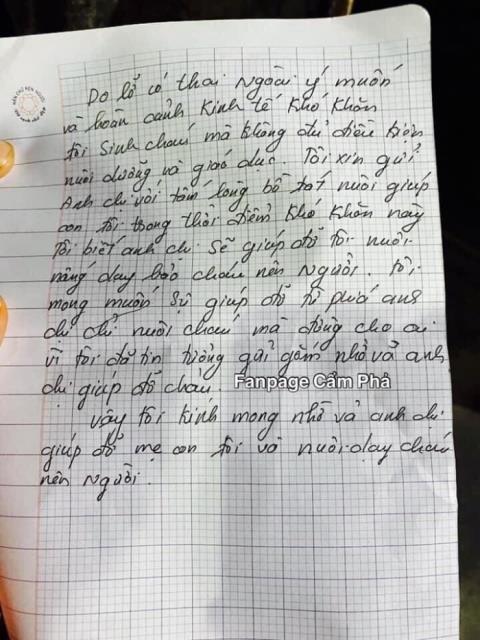 Do lỡ có thai Ngoài ý muốn
và hoàn cảnh kinh tế khó khăn
tôi sinh cháu mà không đủ điều kiện
nuôi dưỡng và giáo dục. Tôi xin gửi
Anh chị với tấm lòng bồ tát nuôi giúp
con tôi trong thời điểm khó khăn này
Tôi biết anh chị sẽ giúp đỡ tôi nuôi
nấng dạy bảo cháu nên Người. Tôi
mong muốn sự giúp đỡ từ phía anh
chị chỉ nuôi cháu mà đừng cho ai
vì tôi đã tin tưởng gửi gắm nhờ vả anh
chị giúp đỡ cháu.
Fanpage Cẩm Phả
Vậy tôi kính mong nhờ vả anh chị
giúp đỡ mẹ con tôi và nuôi dạy cháu
nên Người.